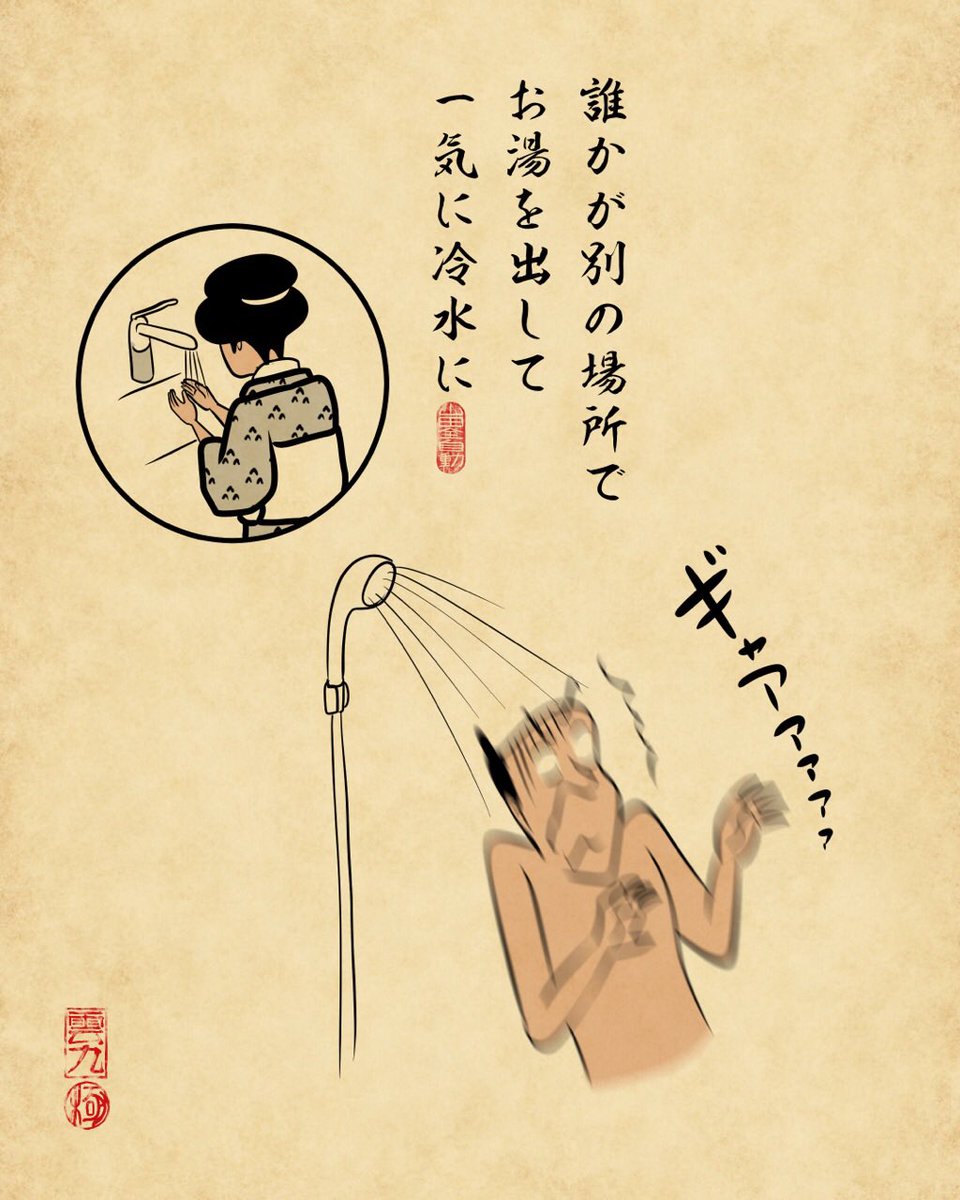 誰かが別の場所で
お湯を出して
一気に冷水に
ギャアアアアアァ